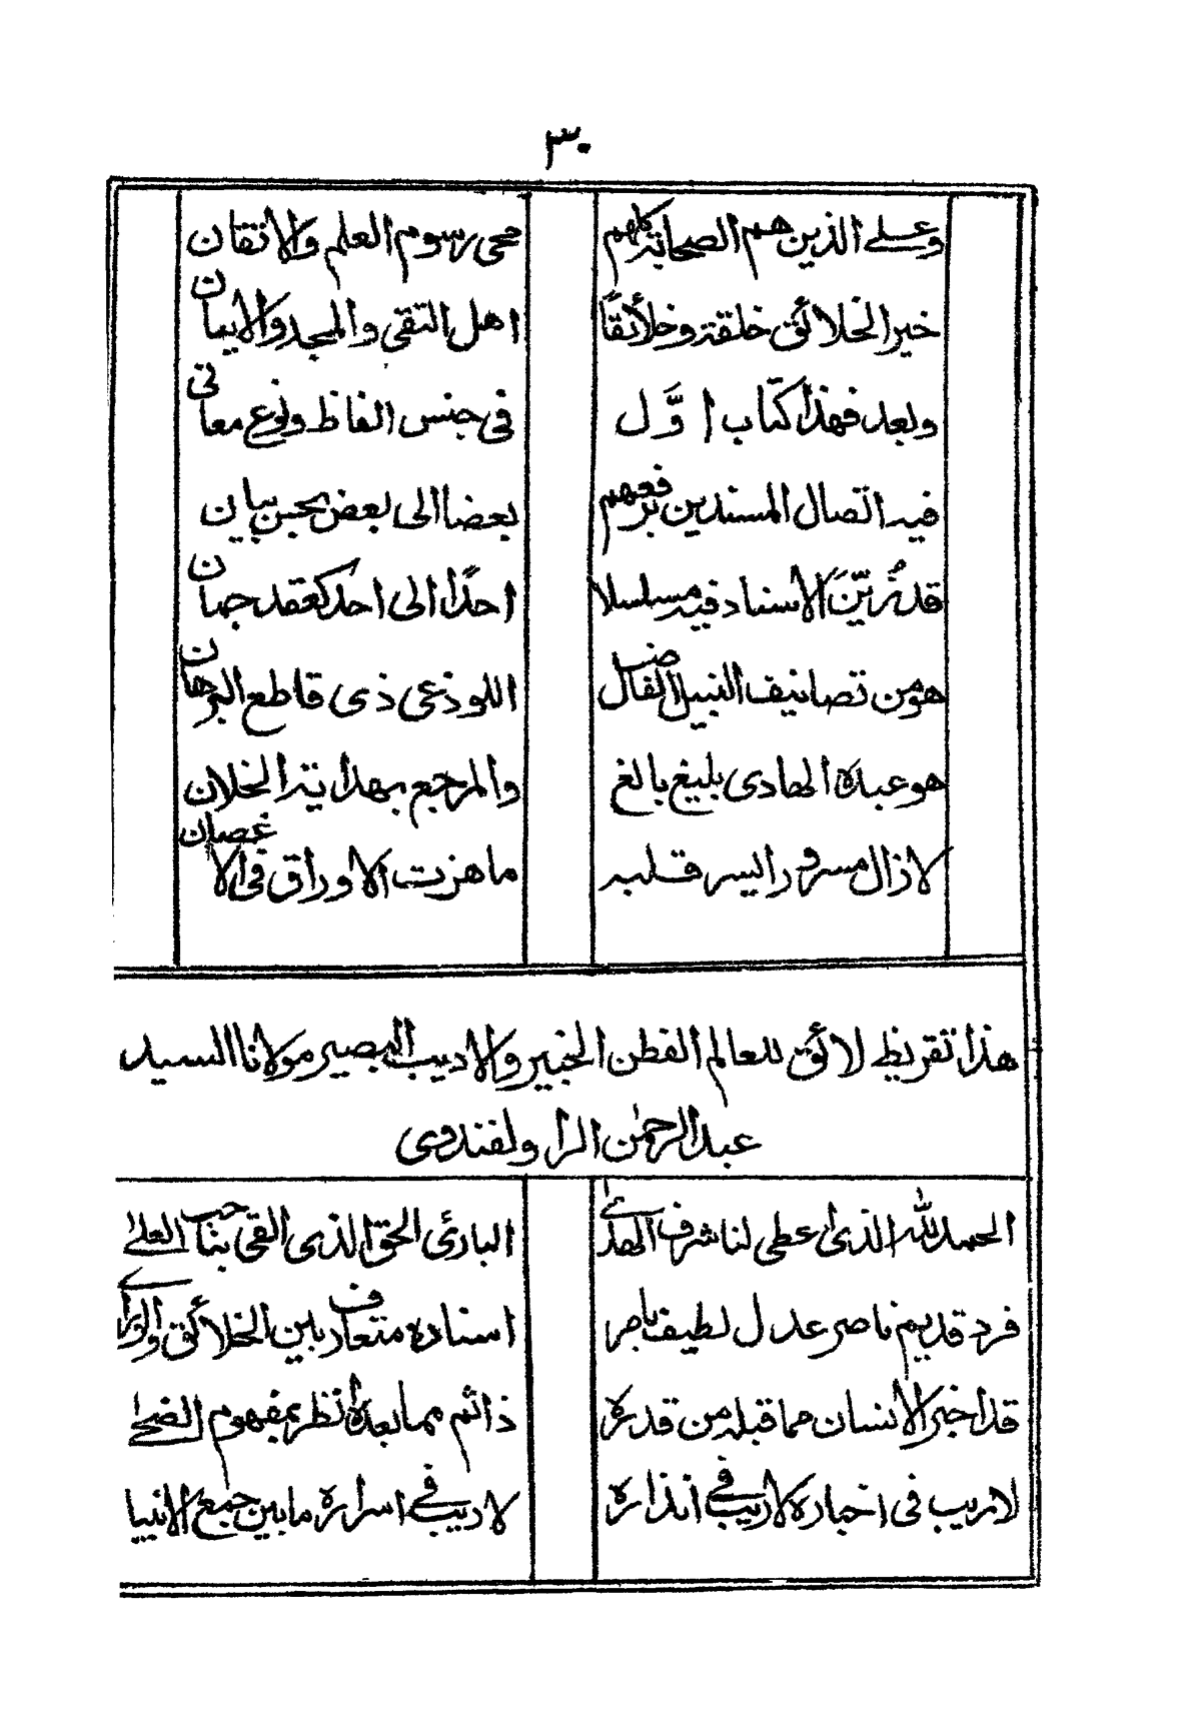 ٣٠
وعلى الذين هم الصحابة كلهم محى رسوم العلم والاتقان
خير الخلائق خلقة وخلائقاً اهل التقى والمجد والايمان
وبعد فهذا كتاب اوَّل فى جنس الفاظ ونوع معانى
فيه اتصال المسندين برفعهم بعضا الى بعض بحسن بيان
قد زُيّنَ الاسناد فيه مسلسلا احدًا الى احد كعقد جمان
هو من تصانيف النبيل الفاضل اللوذعى ذى قاطع البرهان
هو عبده الهادى بليغ بالغ والمرجع بهداية الخلان
لازال مسرور اليسر قلبه ماهزت الاوراق فى الاغصان
هذا تقريظ لائق للعالم الفطن الخبير والاديب البصير مولانا السيد
عبد الرحمٰن الراولفندوى
الحمد لله الذى اعطى لنا شرف الهدىٰ البارئ الحق الذى القى بنا حب العلى
فرد قديم ناصر عدل لطيف اسناده متعارف بين الخلائق والورىٰ
قد اخبر الانسان مما قبله من قدره دائم مما بعده انظر بمفهوم الضحىٰ
لاريب فى اخباره لاريب فى انذاره لاريب فى اسراره مابين جمع الانبيا